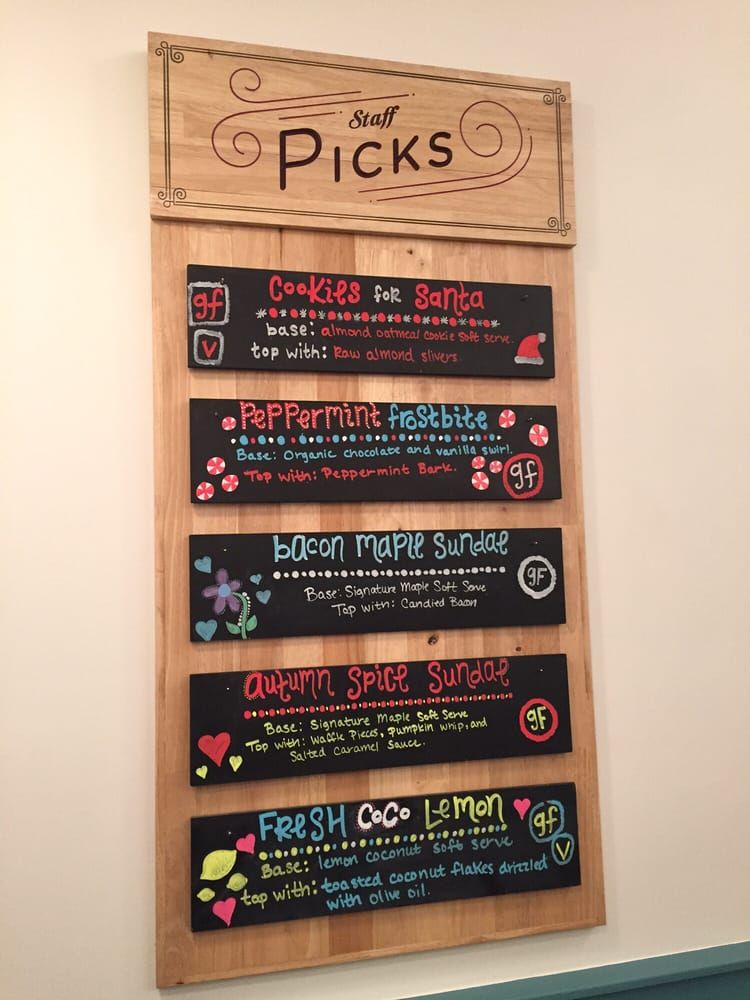 Staff
PICKS
gf
v
Cookies for Santa
base: almond oatmeal cookie soft serve.
top with: Raw almond slivers.
Peppermint frostbite
Base: Organic chocolate and vanilla swirl.
Top with: Peppermint Bark.
gf
bacon maple Sundae
Base: Signature Maple Soft Serve
Top with: Candied Bacon
gF
autumn Spice Sundae
Base: Signature Maple Soft Serve
Top with: Waffle Pieces, pumpkin whip, and
Salted Caramel Sauce.
gF
FReSH CoCo Lemon
Base: lemon coconut soft serve
top with: toasted coconut flakes drizzled
with olive oil.
gf
v